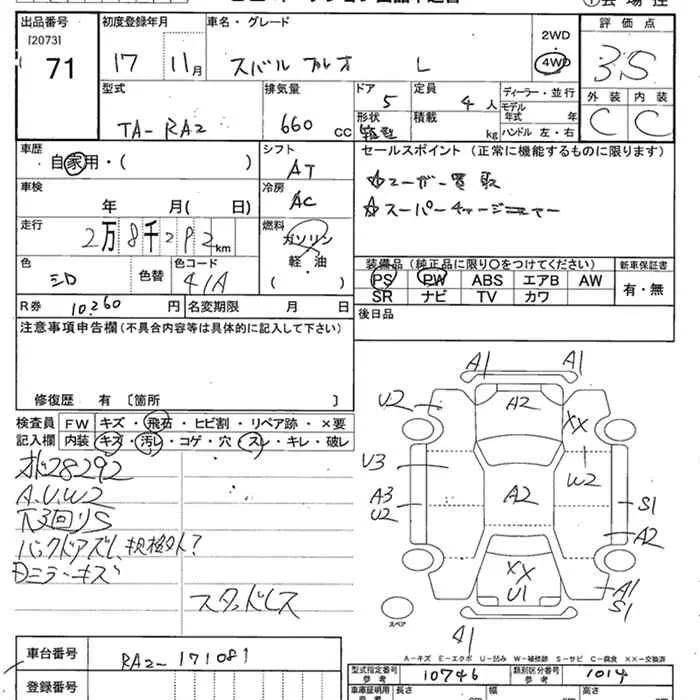 出品番号 初度登録年月 車名・グレード 2WD 評価点
[2073] 71 17 11月 スバル プレオ L 4WD 3S
型式 排気量 ドア 定員 ディーラー・並行 外装 内装
TA-RA2 660cc 5 4人 モデル 年式 年 C C
形状 積載 kg ハンドル 左・右
車歴 シフト セールスポイント (正常に機能するものに限ります)
自家用・( ) AT ☆ユーザー買取
車検 冷房 ☆スーパーチャージャー
年 月( 日) AC
走行 燃料
2万8千292km ガソリン
軽・油
( )
装備品 (純正品に限り〇をつけてください) 新車保証書
色 色替 色コード PS PW ABS エアB AW 有・無
41A SR ナビ TV カワ
R券 10,260円 名変期限 月 日 後日品
注意事項申告欄(不具合内容等は具体的に記入して下さい)
修復歴 有 〔箇所 〕
検査員 FW キズ・飛石・ヒビ割・リペア跡・×要
記入欄 内装 キズ・汚レ・コゲ・穴・スレ・キレ・破レ
28292
A.U.W2
下回りS
バックドアガラス 規格外?
ミラーキズ
スタッドレス
A1 A1
U2 A2 XX
U3 W2
A3 A2 S1
U2 A2
XX A1
U1 S1
スペア
A1
A-キズ E-エクボ U-凹み W-補修跡 S-サビ C-腐食 XX-交換済
車台番号 RA2-171081
型式指定番号 参考 10746 類別区分番号 参考 1014
登録番号 車庫証明用 参考 長さ 幅 高さ